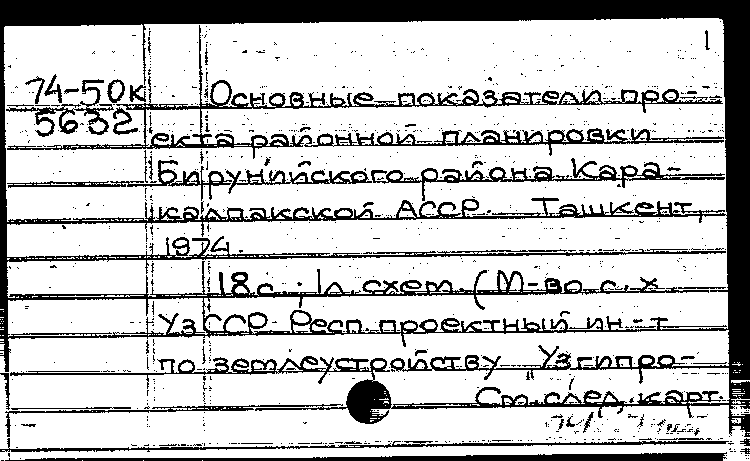 1
74-50к Основные показатели про-
5632 екта районной планировки
Бирунийского района Кара-
калпакской АССР. Ташкент,
1974.
18с.; 1л. схем. (М-во с.х
УзССР. Респ. проектный ин-т
по землеустройству „Узгипро-
См. след. карт.